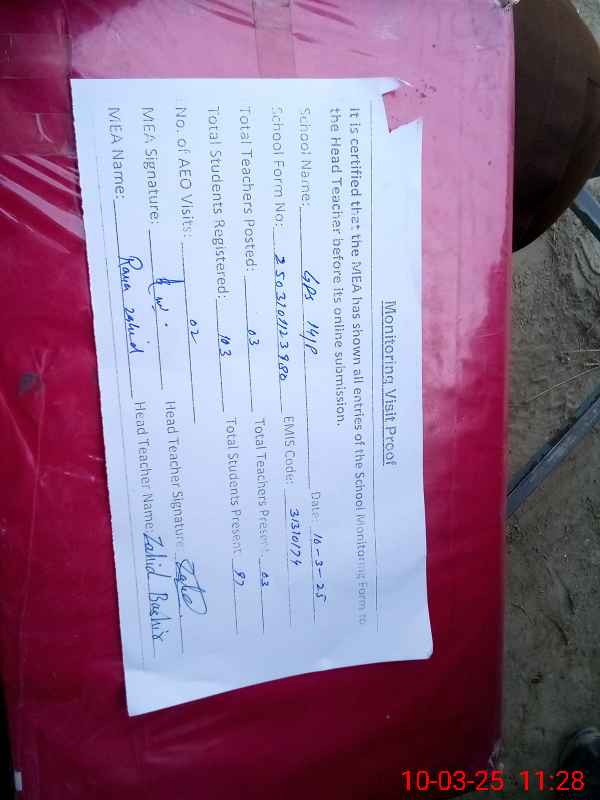 Monitoring Visit Proof
It is certified that the MEA has shown all entries of the School Monitoring Form to
the Head Teacher before its online submission.
School Name: GPS 14/P Date: 10-3-25
School Form No: 250310123980 EMIS Code: 31310174
Total Teachers Posted: 03 Total Teachers Present: 03
Total Students Registered: 103 Total Students Present: 97
No. of AEO Visits: 02
MEA Signature: Head Teacher Signature:
MEA Name: Rana Zahid Head Teacher Name: Zahid Bashir
10-03-25 11:28